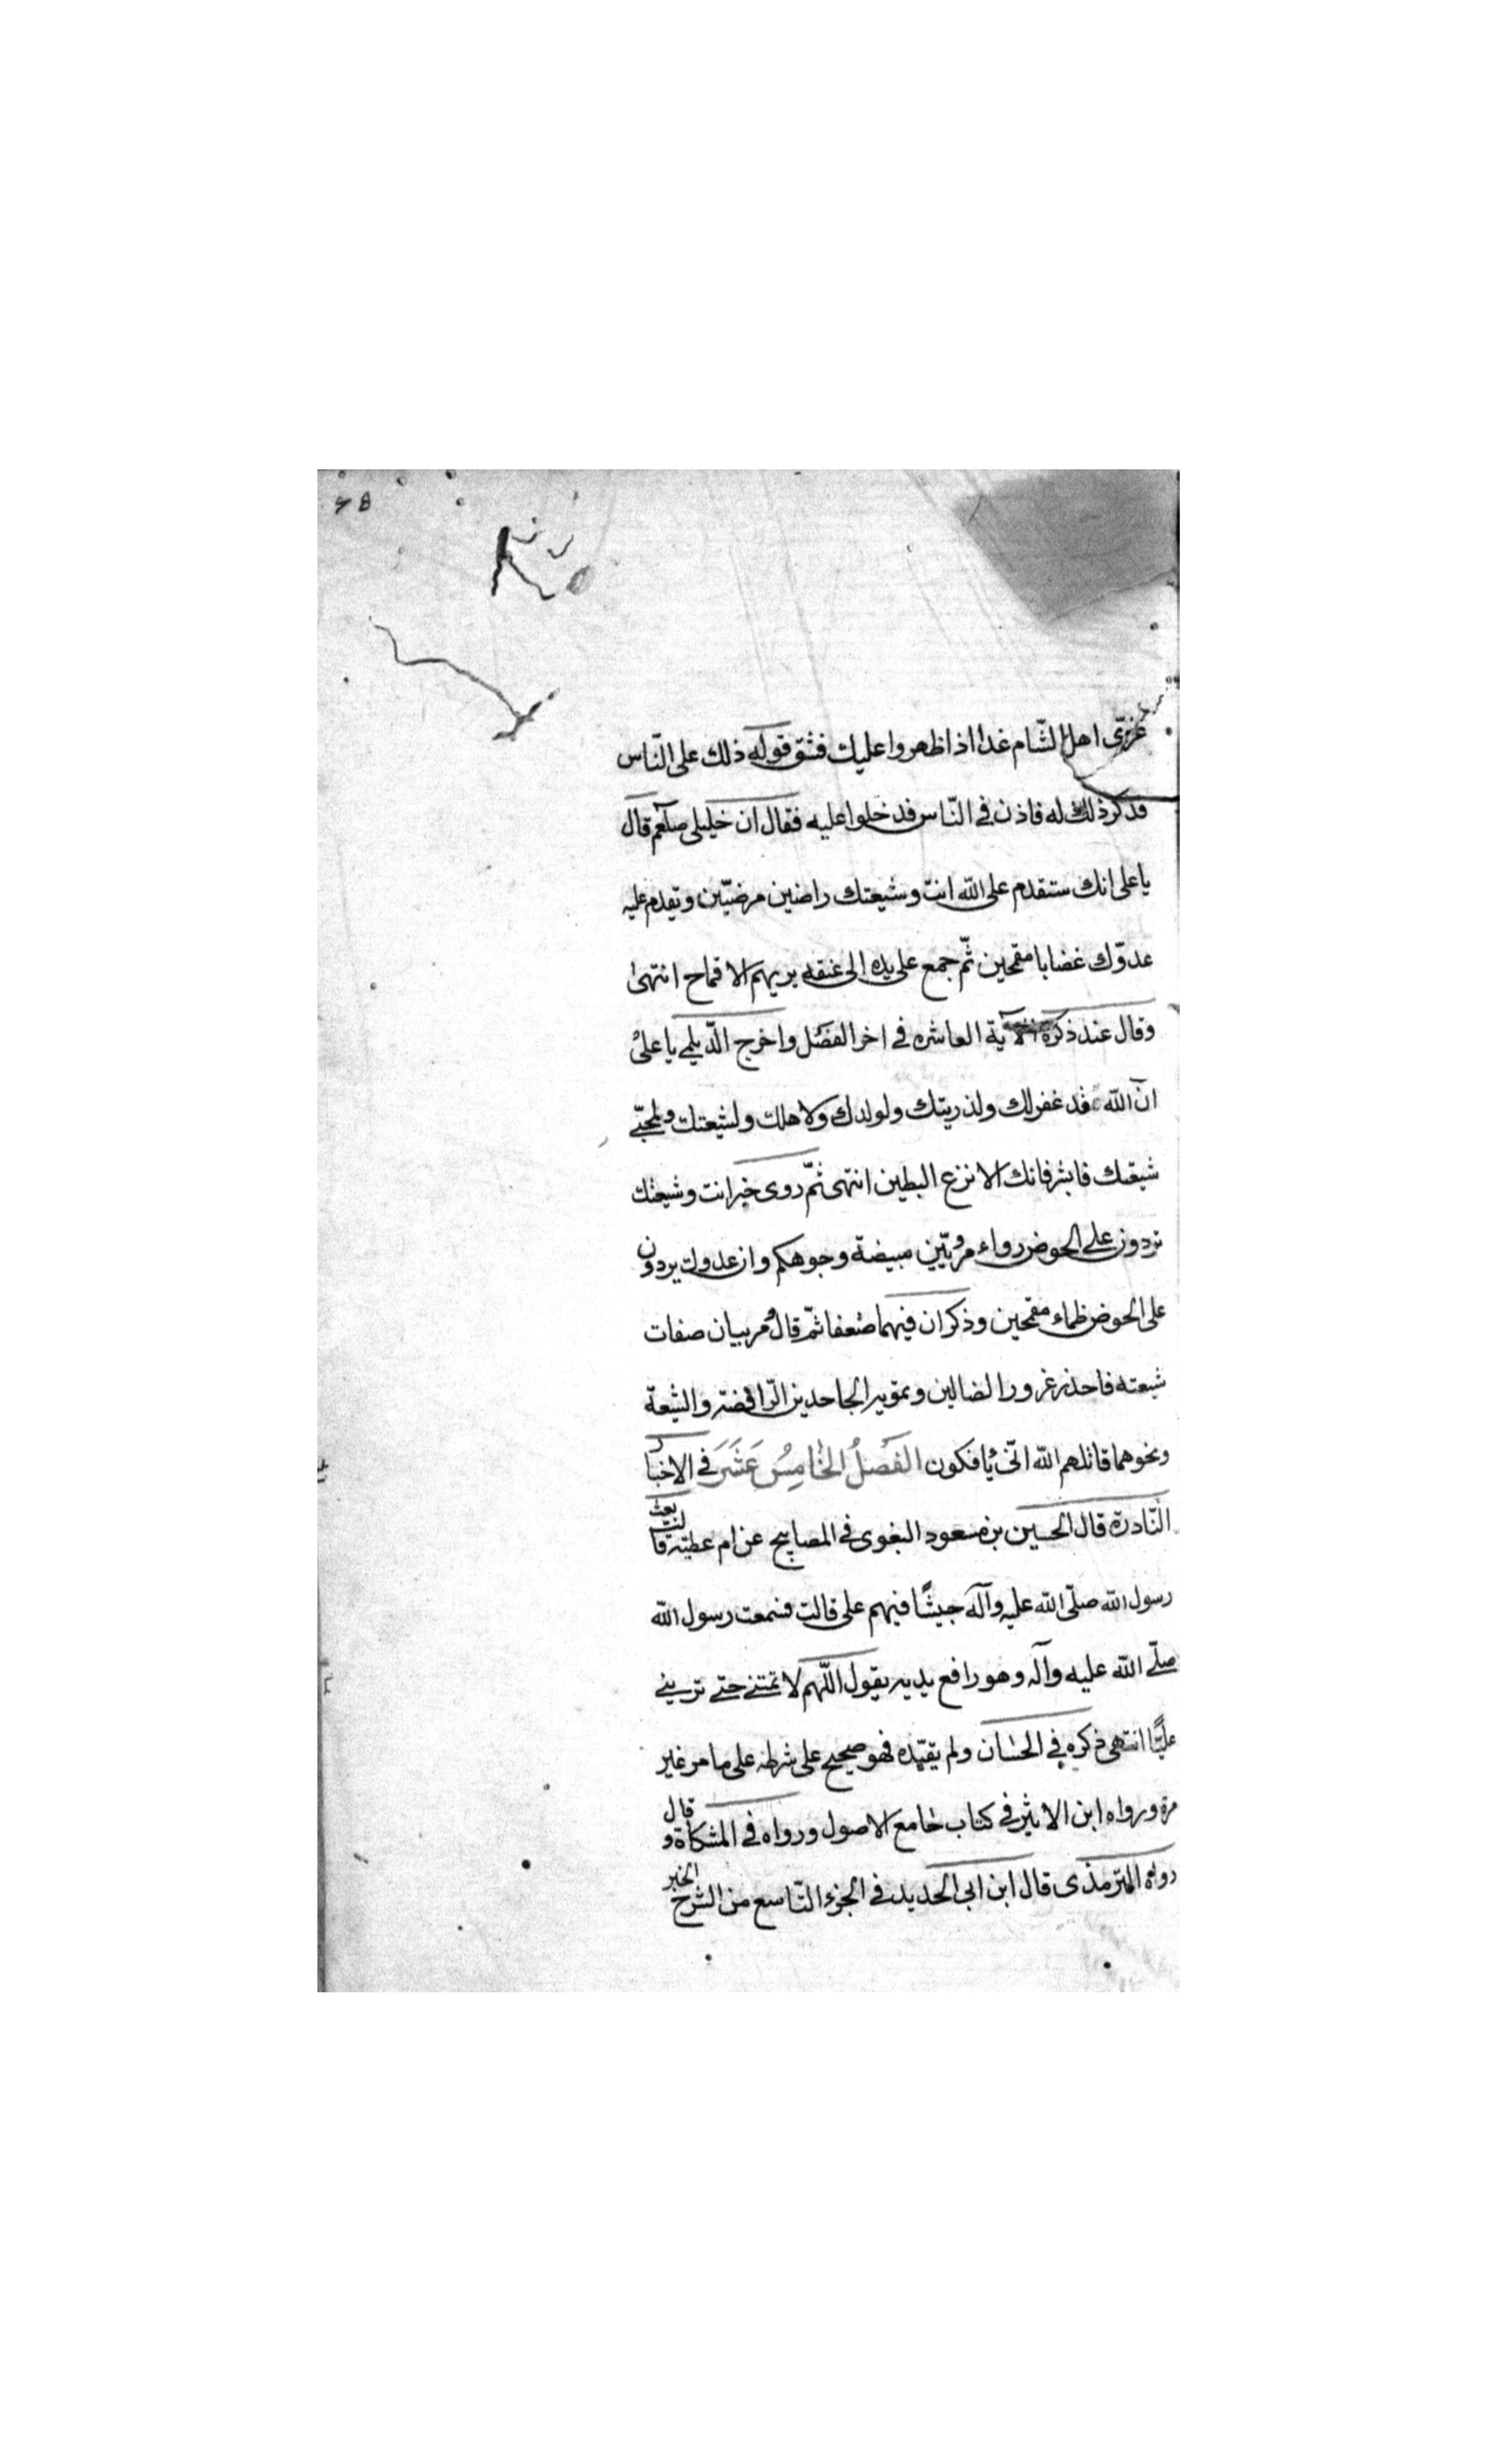 غرّى اهل الشّام غدا اذا ظهروا عليك فشقّ قوله ذلك على النّاس
فذكر ذلك له فاذن فى النّاس فدخلوا عليه فقال ان خليلى صلعم قال
يا على انك ستقدم على الله انت وشيعتك راضين مرضيّين ويقدم عليه
عدوّك غضابا مقمحين ثمّ جمع على يده الى عنقه يريهم الاقماح انتهى
وقال عند ذكره الآية العاشره فى اخر الفصل واخرج الدّيلمى يا علىُ
انّ الله قد غفر لك ولذريتك ولولدك ولاهلك ولشيعتك ولمحبّى
شيعتك فابشر فانك الانزع البطين انتهى ثمّ روى خبر انت وشيعتك
تردون على الحوض رواء مرويّين مبيضة وجوهكم وان عدوك يردون
على الحوض ظماء مقمحين وذكر ان فيهما ضعفا ثمّ قال ومر بيان صفات
شيعته فاحذر غرور الضالين وتمويه الجاحدين الرّافضة والشيعة
ونحوهما قاتلهم الله انّى يؤفكون الفَصلُ الخَامِسُ عَشَرَ فى الاخبار
النّادرة قال الحسين بن مسعود البغوى فى المصابيح عن ام عطيّة قالت بعث
رسول الله صلّى الله عليه وآله جيشًا فيهم على قالت فسمعت رسول الله
صلّى الله عليه وآله وهو رافع يديه يقول اللّهم لا تمتنى حتى ترينى
عليًّا انتهى ذكره فى الحسان ولم يقيّده فهو صحيح على شرطه على ما مر غير
مرة ورواه ابن الاثير فى كتاب جامع الاصول ورواه فى المشكاة وقال
رواه الترمذى قال ابن ابى الحديد فى الجزء التّاسع من الشرح الخبر